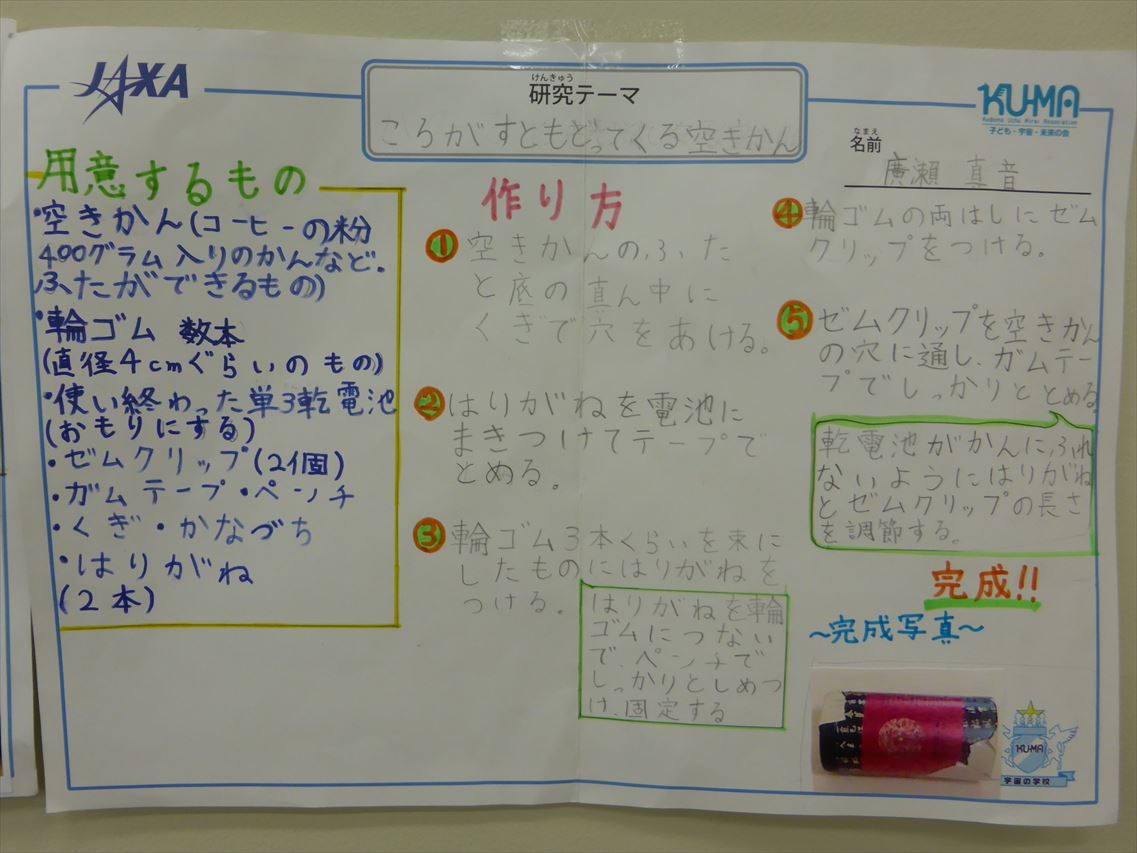 JAXA
けんきゅう
研究テーマ
ころがすともどってくる空きかん
KU-MA
Kodomo Uchu Mirai Association
子ども・宇宙・未来の会
なまえ
名前
廣瀬 真音
用意するもの
・空きかん(コーヒーの粉
400グラム入りのかんなど。
ふたができるもの)
・輪ゴム 数本
(直径4cmぐらいのもの)
・使い終わった単3乾電池
(おもりにする)
・ゼムクリップ(2個)
・ガムテープ・ペンチ
・くぎ・かなづち
・はりがね
(2本)
作り方
① 空きかんのふた
と底の真ん中に
くぎで穴をあける。
② はりがねを電池に
まきつけてテープで
とめる。
③ 輪ゴム3本くらいを束に
したものにはりがねを
つける。
はりがねを輪
ゴムにつない
で、ペンチで
しっかりとしめつ
け、固定する
④ 輪ゴムの両はしにゼム
クリップをつける。
⑤ ゼムクリップを空きかん
の穴に通し、ガムテー
プでしっかりととめる
乾電池がかんにふれ
ないようにはりがね
とゼムクリップの長さ
を調節する。
完成!!
~完成写真~
KU-MA
宇宙の学校